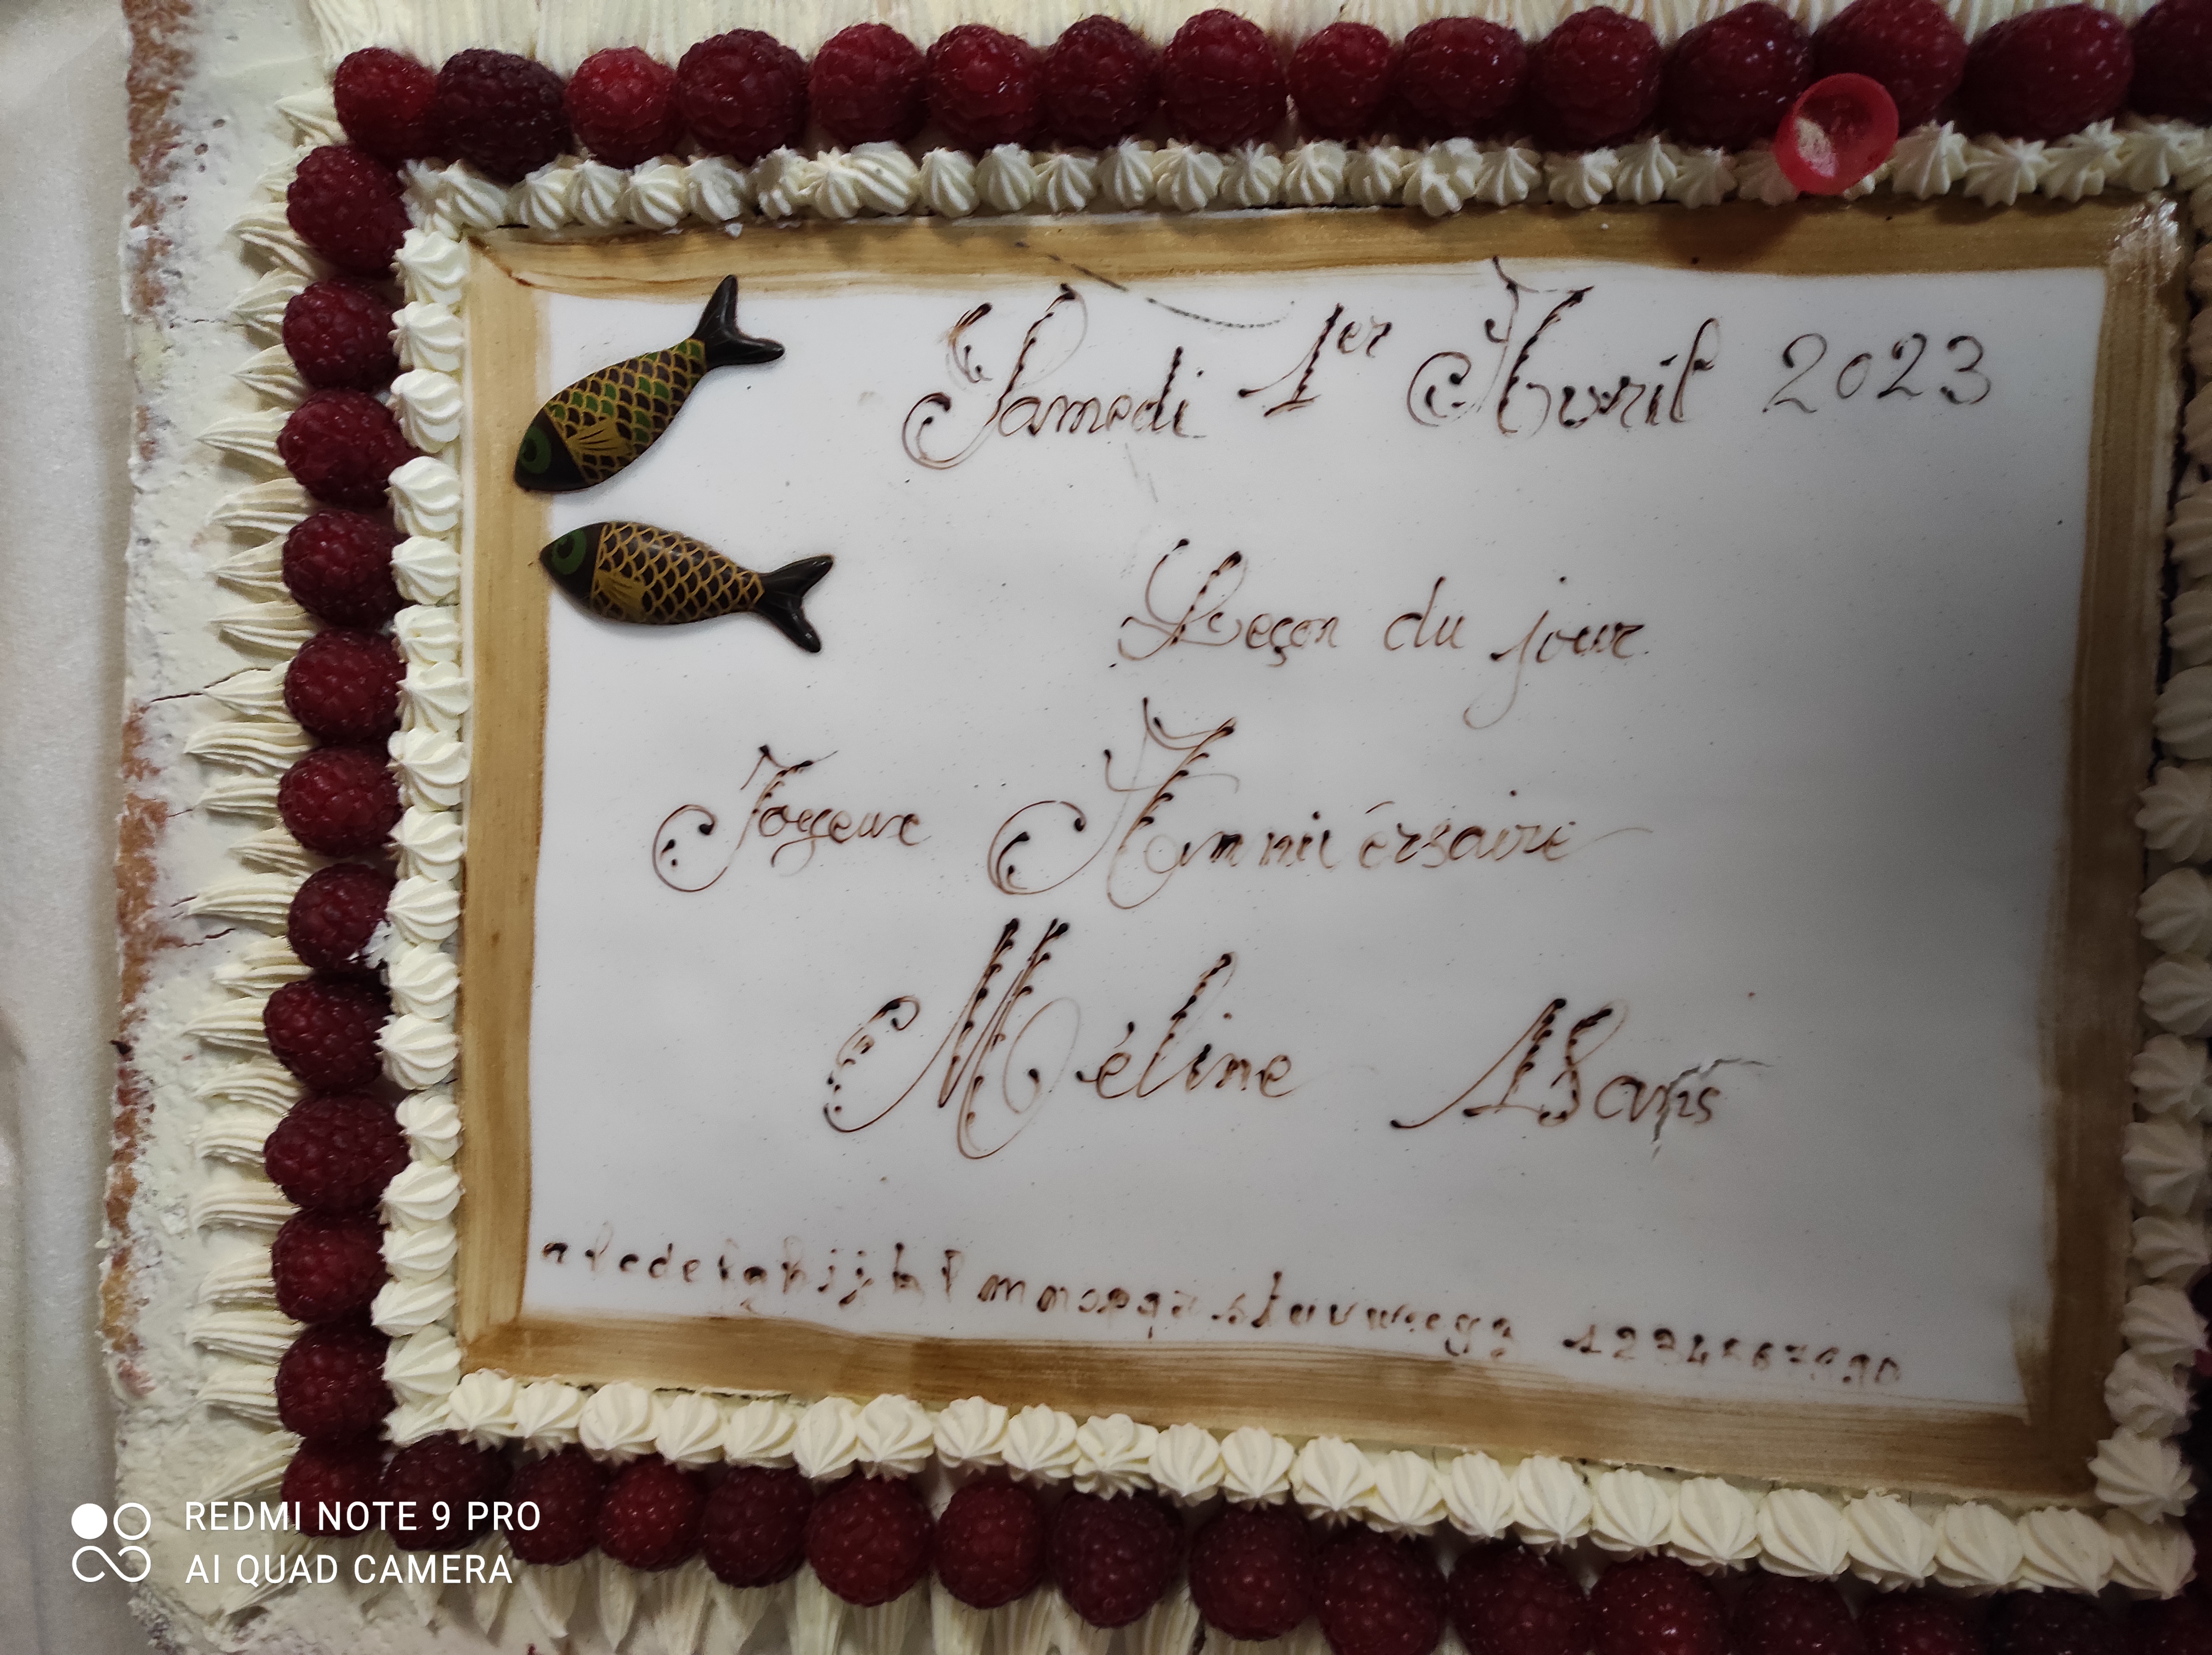 Samedi 1er Avril 2023
Leçon du jour
Joyeux Anniversaire
Méline 18 ans
a b c d e f g h i j k l m n o p q r s t u v w x y z 1 2 3 4 5 6 7 8 9 0
REDMI NOTE 9 PRO
AI QUAD CAMERA